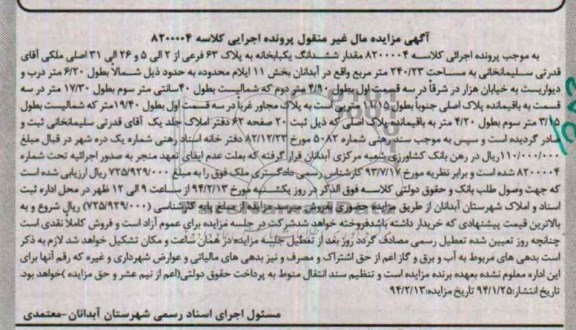 آگهی مزایده مال غیر منقول پرونده اجرایی کلاسه ۸۲۰۰۰۰۴
به موجب پرونده اجرائی کلاسه ۸۲۰۰۰۰۴ مقدار ششدانگ یکبابخانه به پلاک ۶۳ فرعی از ۲ الی ۵ و ۲۶ الی ۳۱ اصلی ملکی آقای
قدرتی سلیمانخانی به مساحت ۲۴۰/۲۳ متر مربع واقع در آبدانان بخش ۱۱ ایلام محدوده به حدود ذیل شمالاً بطول ۶/۲۰ متر درب و
دیواریست به خیابان هزار در شرقاً در سه قسمت اول بطول ۴/۹۰ متر دوم که شمالیست بطول ۴۰ سانتی متر سوم بطول ۱۷/۳۰ متر در سه
قسمت به باقیمانده پلاک اصلی جنوباً بطول ۱۱/۱۵ متریی است به پلاک مجاور غرباً در سه قسمت اول بطول ۱۹/۴۰ متر که شمالیست بطول
۳/۱۵ متر سوم بطول ۴/۲۰ متر به باقیمانده پلاک اصلی که ذیل ثبت ۲۰ صفحه ۶۲ دفتر املاک جلد یک آقای قدرتی سلیمانخانی ثبت و
صادر گردیده است و سپس به موجب سند رهنی شماره ۵۰۸۲ مورخ ۸۲/۱۲/۲۳ دفتر خانه اسناد رهنی شماره یک دره شهر در قبال مبلغ
۱۱۰/۰۰۰/۰۰۰ ریال در رهن بانک کشاورزی شعبه مرکزی آبدانان قرار گرفته که بعلت عدم ایفای تعهد منجر به صدور اجرائیه تحت شماره
۸۲۰۰۰۰۴ شده است و برابر نظریه مورخ ۹۳/۷/۱۷ کارشناس رسمی دادگستری ملک فوق را به مبلغ ۷۲۵/۹۲۹/۰۰۰ ریال ارزیابی شده است
که جهت وصول طلب بانک و حقوق دولتی کلاسه فوق الذکر در روز یکشنبه مورخ ۹۴/۲/۱۳ از ساعت ۹ الی ۱۲ ظهر در محل اداره ثبت
اسناد و املاک شهرستان آبدانان از طریق مزایده حضوری بفروش میرسد مزایده از مبلغ پایه کارشناسی (۷۲۵/۹۲۹/۰۰۰) ریال شروع و به
بالاترین قیمت پیشنهادی که خریدار داشته باشد فروخته خواهد شد شرکت در جلسه مزایده برای عموم آزاد است و فروش کاملا نقدی است
چنانچه روز تعیین شده تعطیل رسمی مصادف گردد روز بعد از تعطیل جلسه مزایده در همان ساعت و مکان تشکیل خواهد شد لازم به ذکر
است بدهی های مربوط به آب و برق و گاز اعم از حق اشتراک و مصرف و نیز بدهی های مالیاتی و عوارض شهرداری و غیره که رقم آنها برای
این اداره معلوم نشده بعهده برنده مزایده است و تنظیم سند انتقال منوط به پرداخت حقوق دولتی(اعم از نیم عشر و حق مزایده )خواهد بود.
تاریخ انتشار:۹۴/۱/۲۵ تاریخ مزایده:۹۴/۲/۱۳
مسئول اجرای اسناد رسمی شهرستان آبدانان-معتمدی